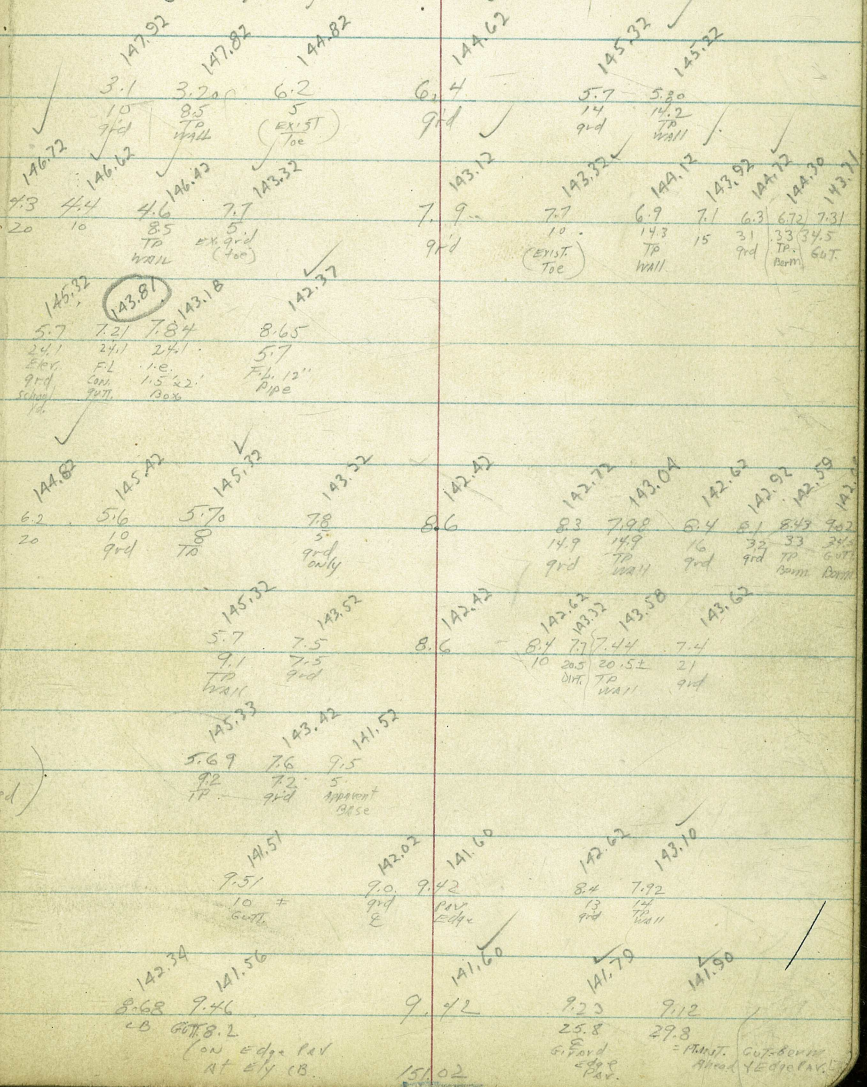 147.92 147.82 144.82 144.62 145.32 145.22
3.1 3.20 6.2 6.4 5.7 5.80
10 8.5 5 14 14.2
grd TP (Exist grd grd TP
WALL Toe) WALL
146.72 146.62 146.42 143.32 143.12 143.32 144.12 143.92 144.72 144.30 143.71
4.3 4.4 4.6 7.7 7.9 7.7 6.9 7.1 6.3 6.72 7.31
20 10 8.5 5 10 14.3 15 31 33 34.5
TP ex. grd grd (Exist. TP grd TP. Gut.
WALL (toe) Toe) WALL Berm
145.32 143.81 143.18 142.37
5.7 7.21 7.84 8.65
24.1 24.1 24.1 5.7
Elev. F.L i.e. F.L. 12"
grd Con. 1.5'x2' Pipe
School gutt. Box
Yd.
144.82 145.42 145.32 143.22 142.42 142.72 143.04 142.62 142.92 142.59
6.2 5.6 5.70 7.8 8.6 8.3 7.98 8.4 8.1 8.43 9.02
20 10 8 5 14.9 14.9 16 32 33
grd TP grd grd TP grd grd TP Gutt
only WALL Berm Berm
145.32 143.52 142.42 142.62 143.32 143.58 143.62
5.7 7.5 8.6 8.4 7.7 7.44 7.4
9.1 7.5 10 20.5 20.5± 21
TP grd Dirt. TP grd
WALL WALL
145.33 143.42 141.52
5.69 7.6 9.5
9.2 7.2 5
TP grd Apparent
Base
141.51 142.02 141.60 142.62 143.10
9.51 9.0 9.42 8.4 7.92
10 ± grd Pav. 13 14
Gutt. ₵ Edge grd TP
WALL
142.34 141.56 141.60 141.79 141.90
8.68 9.46 9.42 9.23 9.12
CB Gutt 8.2 25.8 29.8
(on Edge Pav
At Ely CB. Edge Gut. Berm
151.02 Pav. Ahead & Edge Pav.